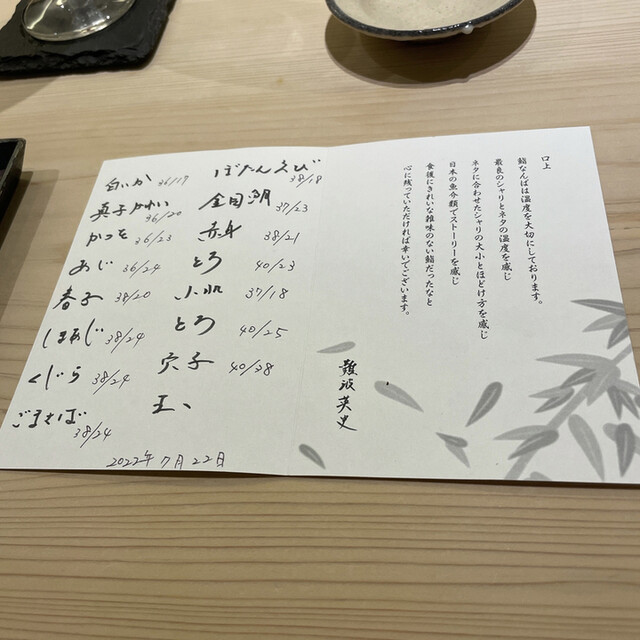 口上
鮨なんばは温度を大切にしております。
最良のシャリとネタの温度を感じ
ネタに合わせたシャリの大小とほどけ方を感じ
日本の魚介類でストーリーを感じ
食後にきれいな雑味のない鮨だったなと
心に残っていただければ幸いでございます。
難波英史
白いか 36/19
真子がれい 36/20
かつを 36/23
あじ 36/24
春子 38/20
しまあじ 38/24
くじら 38/24
ごまさば 38/24
ぼたんえび 38/18
金目鯛 37/23
赤身 38/21
とろ 40/23
小肌 37/18
とろ 40/25
穴子 40/38
玉
2022年7月22日